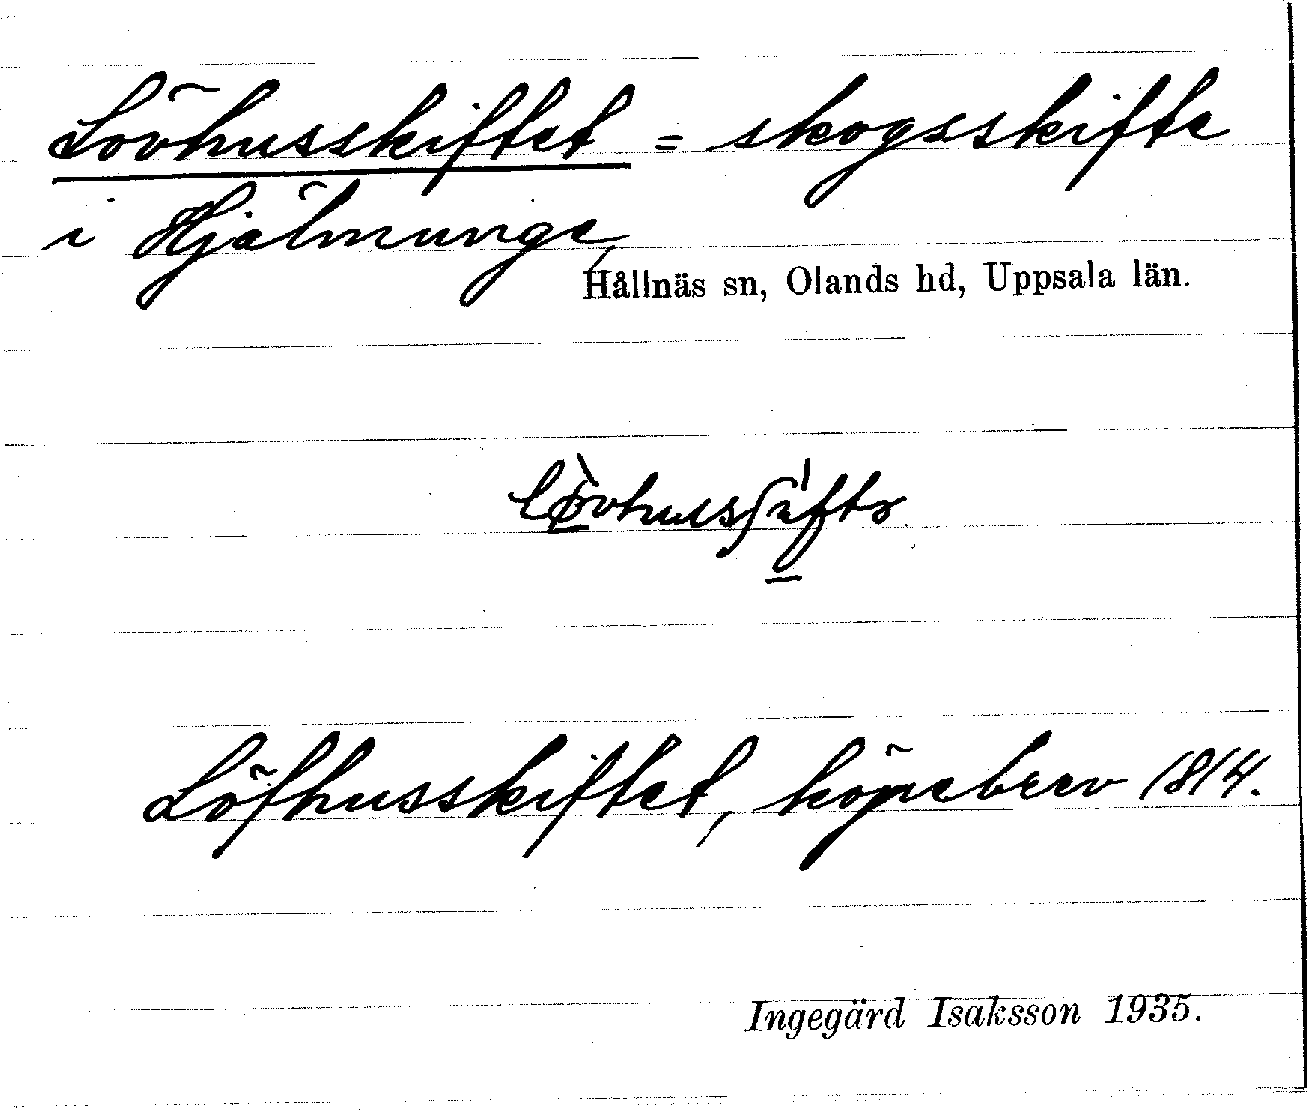 Lövhusskiftet = skogsskifte
i Hjälmunge,
Hållnäs sn, Olands hd, Uppsala län.
Löfhusskiftet, köpebrev 1814.
Ingegärd Isaksson 1935.